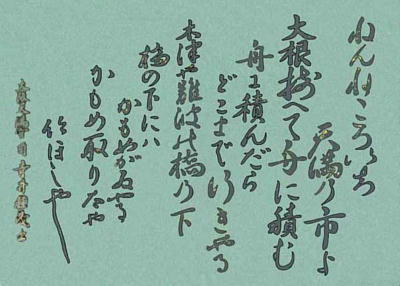 ねんねころいち
天満の市よ
大根揃へて舟に積む
舟に積んだら
どこまで行きやる
木津や難波の橋の下
橋の下には
かもめが居やる
かもめ取りたや